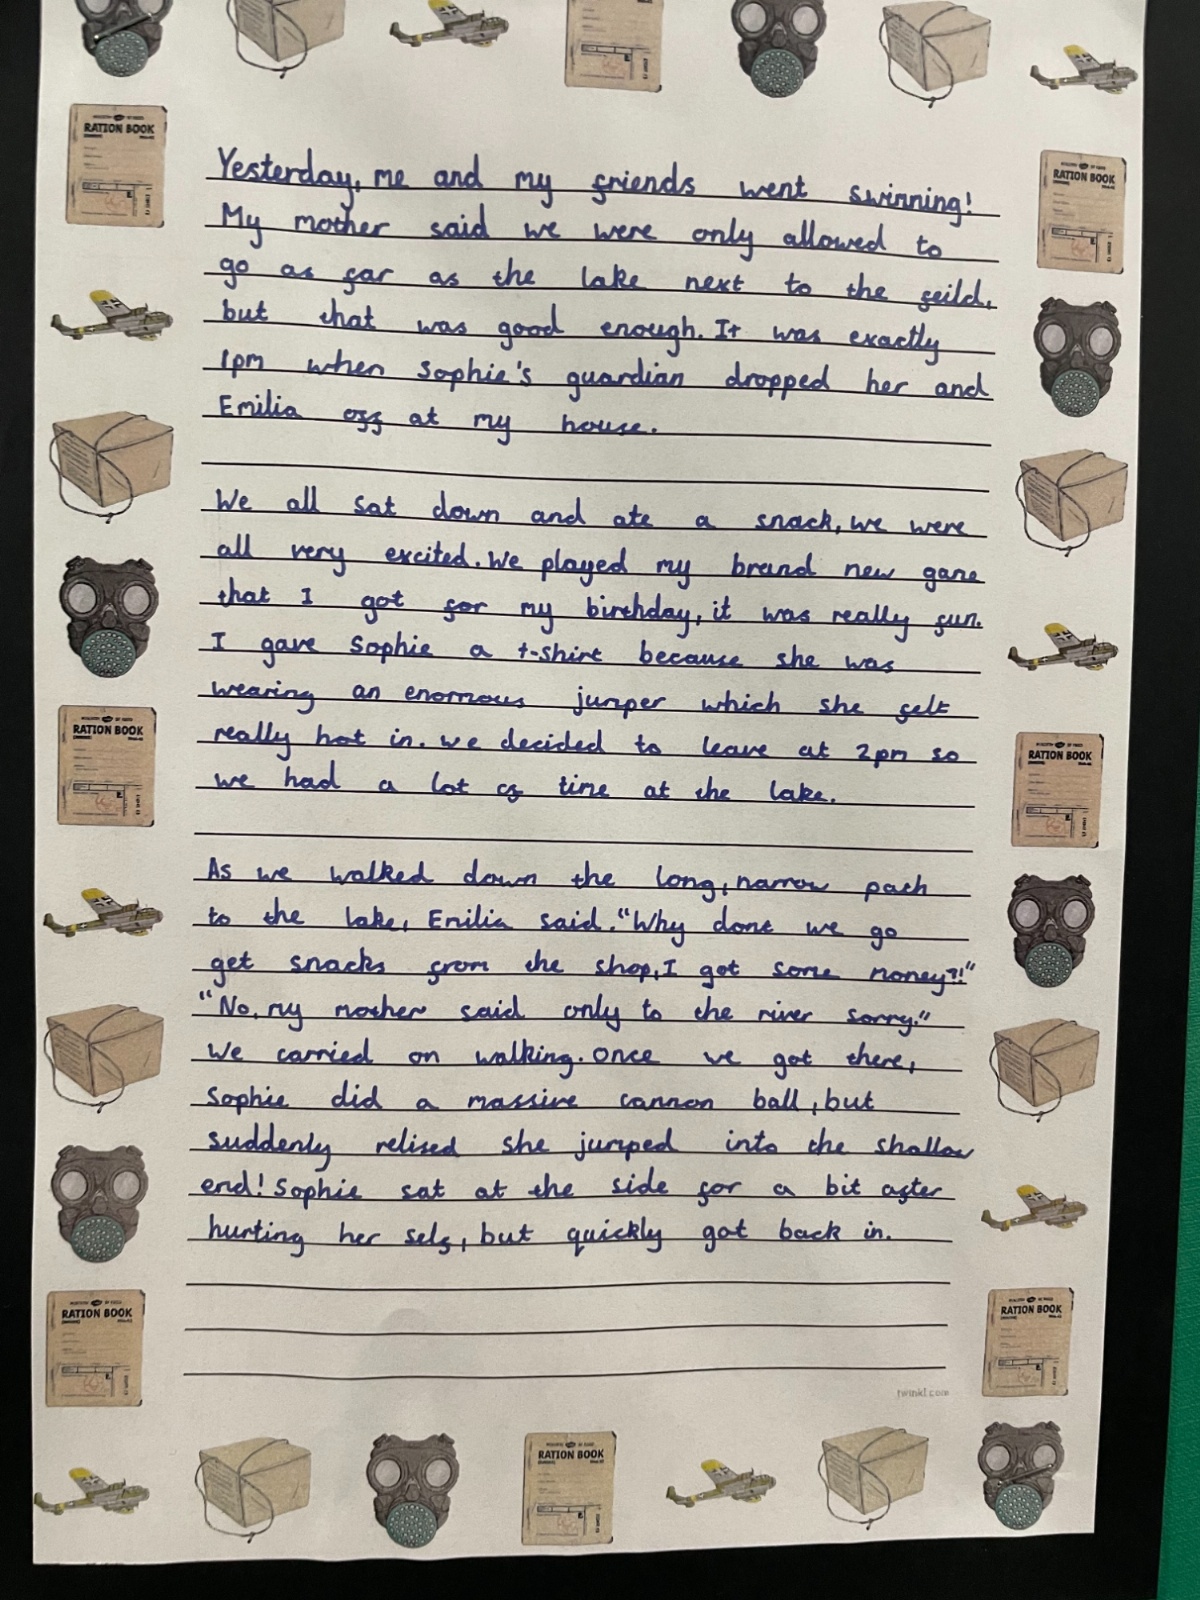 RATION BOOK
RATION BOOK
Yesterday, me and my friends went swimming!
My mother said we were only allowed to
go as far as the lake next to the feild,
but that was good enough. It was exactly
1pm when Sophie's guardian dropped her and
Emilia off at my house.
We all sat down and ate a snack, we were
all very excited. We played my brand new game
that I got for my birthday, it was really fun.
I gave Sophie a t-shirt because she was
wearing an enormous jumper which she felt
really hot in. we decided to leave at 2pm so
we had a lot of time at the lake.
RATION BOOK
RATION BOOK
As we walked down the long, narrow path
to the lake, Emilia said. "Why dont we go
get snacks from the shop, I got some money?!"
"No, my mother said only to the river sorry."
We carried on walking. Once we got there,
Sophie did a massive cannon ball, but
suddenly relised she jumped into the shallow
end! Sophie sat at the side for a bit after
hurting her self, but quickly got back in.
RATION BOOK
RATION BOOK
twinkl.com
RATION BOOK